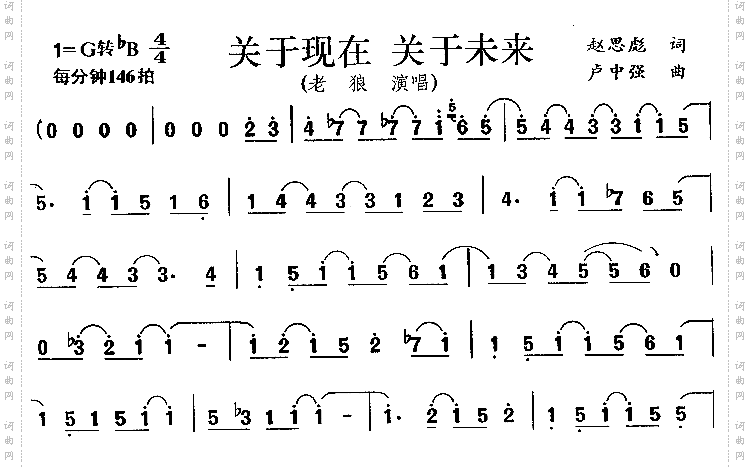 1=G转♭B 4/4 关于现在 关于未来 赵思彪 词
每分钟146拍 (老 狼 演唱) 卢中强 曲
(0 0 0 0 | 0 0 0 2̇ 3̇ | 4̇ ♭7 7 ♭7 7 1̇ 6̇ 5̇ | 5̇ 4̇ 4̇ 3̇ 3̇ 1̇ 1̇ 5 |
5. 1̇ 1̇ 5 1 6̣ | 1 4 4 3 3 1 2 3 | 4. 1̇ 1̇ ♭7 6 5 |
5 4 4 3 3. 4 | 1 5̣ 1̇ 1̇ 5 6 1 | 1 3 4 5 5 6 0 |
0 ♭3̇ 2̇ 1̇ 1̇ - | 1̇ 2̇ 1̇ 5 2̇ ♭7 1̇ | 1 5̣ 1̇ 1̇ 5 5̣ |
1 5̣ 1 5 1̇ 1̇ | 5 ♭3 1 1̇ 1̇ - | 1̇. 2̇ 1̇ 5 2̇ | 1 5̣ 1̇ 1̇ 5 5̣ |
词曲网
词曲网
词曲网
词曲网
词曲网